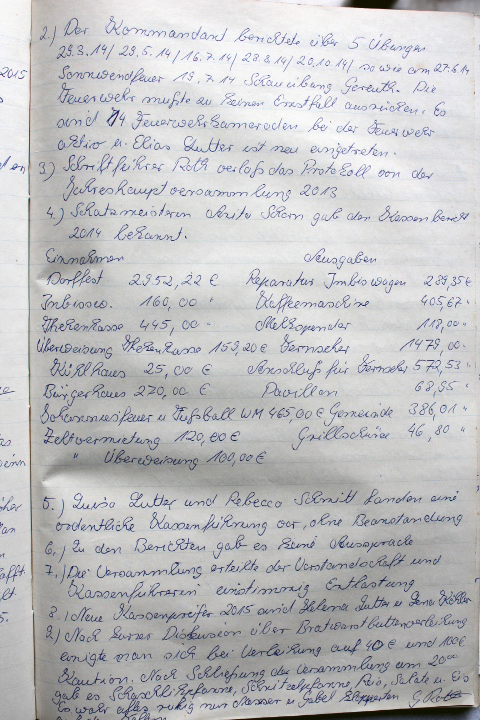 2.) Der Kommandant berichtete über 5 Übungen
29.3.14/ 29.5.14/ 16.7.14/ 28.8.14/ 20.10.14/ sowie am 27.6.14
Sonnwendfeuer 19.7.14 Schauübung Gereuth. Die
Feuerwehr mußte zu keinen Ernstfall ausrücken. Es
sind 14 Feuerwehrkameraden bei der Feuerwehr
aktiv u. Elias Lutter ist neu eingetreten.
3.) Schriftführer Roth verlaß das Protokoll von der
Jahreshauptversammlung 2013
4.) Schatzmeisterin Anita Schorn gab den Kassenbericht
2014 bekannt.
Einnahmen Ausgaben
Dorffest 2952,22 € Reparatur Imbiswagen 289,35€
Imbissw. 160,00 " Kaffemaschine 405,67 "
Thekenkasse 445,00 " Melkspender 118,00 "
Überweisung Thekenkasse 159,20€ Fernseher 1479,00 "
Kühlhaus 25,00 € Anschluß für Fernseher 572,53 "
Bürgerhaus 270,00 € Pavillon 68,95 "
Johannisfeuer u. Fußball WM 465,00 € Gemeinde 386,01 "
Zeltvermietung 120,00€ Grillschürze 46,80 "
" Überweisung 100,00€
5.) Luisa Lutter und Rebecca Schmitt fanden eine
ordentliche Kassenführung vor, ohne Beanstandung
6.) Zu den Berichten gab es keine Aussprache
7.) Die Versammlung erteilte der Vorstandschaft und
Kassenführerin einstimmig Entlastung
8.) Neue Kassenprüfer 2015 sind Helena Lutter u. Lena
9.) Nach kurzer Diskussion über Bratwursthüttenverleihung
einigte man sich bei Verleihung auf 40€ und 100€
Kaution. Nach Schließung der Versammlung um 20⁰⁰
gab es Schaschlikpfanne, Schnitzelpfanne, Reis, Salate u. Eis
Es wahr alles ruhig nur Messer u. Gabel klapperten G. Roth